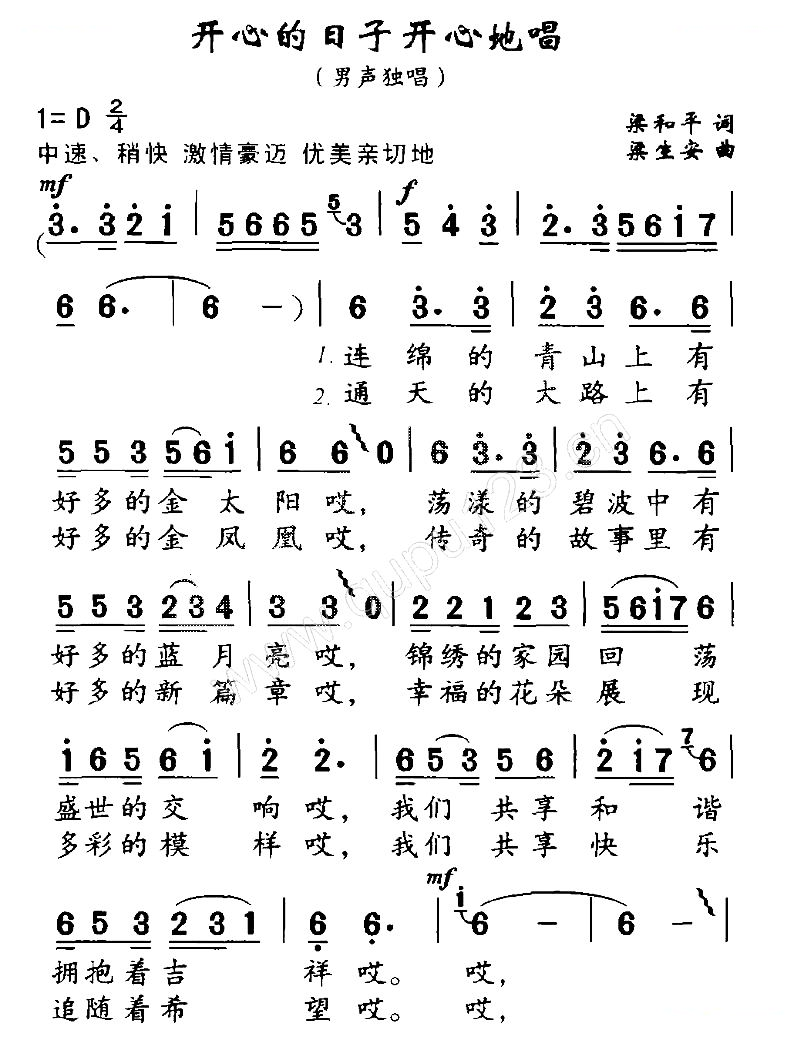 开心的日子开心地唱
（男声独唱）
1=D 2/4
梁和平 词
中速、稍快 激情豪迈 优美亲切地
梁生安 曲
mf f
(3. 3 2 1 | 5 6 6 5 5 3 | 5 4 3 | 2. 3 5 6 1 7 |
6 6. | 6 －) | 6 3. 3 | 2 3 6. 6 |
1.连绵的青山上有
2.通天的大路上有
5 5 3 5 6 1 | 6 6 0 | 6 3. 3 | 2 3 6. 6 |
好多的金太阳哎，荡漾的碧波中有
好多的金凤凰哎，传奇的故事里有
5 5 3 2 3 4 | 3 3 0 | 2 2 1 2 3 | 5 6 1 7 6 |
好多的蓝月亮哎，锦绣的家园回荡
好多的新篇章哎，幸福的花朵展现
1 6 5 6 1 | 2 2. | 6 5 3 5 6 | 2 1 7 7 6 |
盛世的交响哎，我们共享和谐
多彩的模样哎，我们共享快乐
mf
6 5 3 2 3 1 | 6 6. | 1 6 － | 6 － |
拥抱着吉祥哎。哎，
追随着希望哎。哎，
www.qupu123.cn